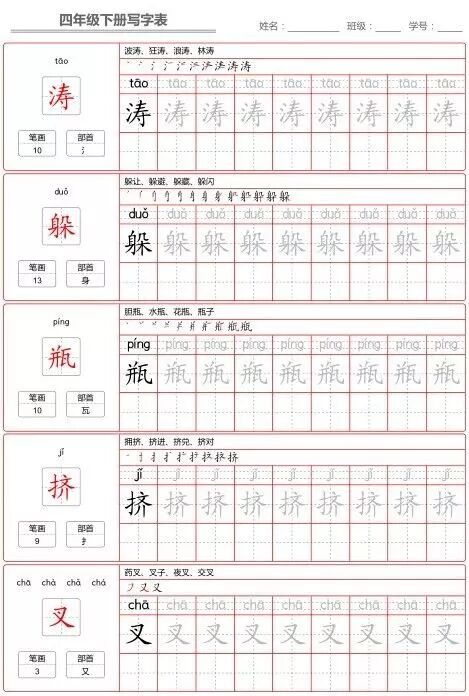 四年级下册写字表 姓名： 班级： 学号：
tāo
涛
笔画 部首
10 氵
波涛、狂涛、浪涛、林涛
tāo tāo tāo tāo tāo tāo tāo tāo tāo
涛 涛 涛 涛 涛 涛 涛 涛 涛
duǒ
躲
笔画 部首
13 身
躲让、躲避、躲藏、躲闪
duǒ duǒ duǒ duǒ duǒ duǒ duǒ duǒ duǒ
躲 躲 躲 躲 躲 躲 躲 躲 躲
píng
瓶
笔画 部首
10 瓦
胆瓶、水瓶、花瓶、瓶子
píng píng píng píng píng píng píng píng píng
瓶 瓶 瓶 瓶 瓶 瓶 瓶 瓶 瓶
jǐ
挤
笔画 部首
9 扌
拥挤、挤进、挤兑、挤对
jǐ jǐ jǐ jǐ jǐ jǐ jǐ jǐ jǐ
挤 挤 挤 挤 挤 挤 挤 挤 挤
chā chà chǎ chá
叉
笔画 部首
3 又
药叉、叉子、夜叉、交叉
chā chā chā chā chā chā chā chā chā
叉 叉 叉 叉 叉 叉 叉 叉 叉